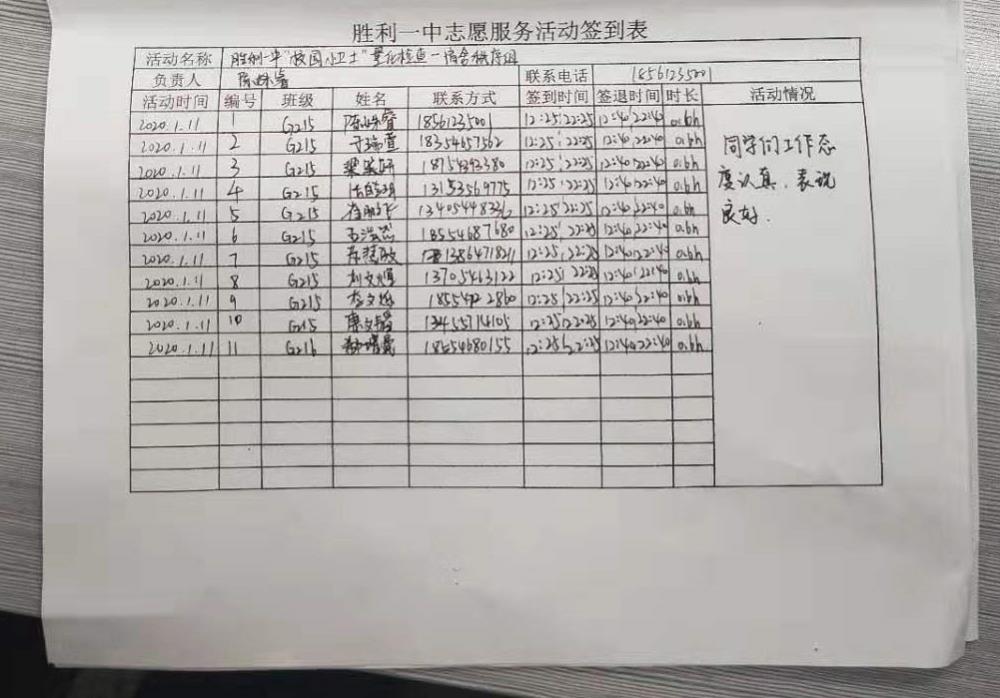 胜利一中志愿服务活动签到表
活动名称 胜利一中"校园小卫士"量化检查-宿舍秩序组
负责人 陈姝睿 联系电话 18561235001
活动时间 编号 班级 姓名 联系方式 签到时间 签退时间 时长 活动情况
2020.1.11 1 G215 陈姝睿 18561235001 12:25,22:25 12:40,22:40 0.6h
2020.1.11 2 G215 于瑞萱 18354657562 12:25,22:25 12:40,22:40 0.6h
2020.1.11 3 G215 12:25,22:25 12:40,22:40 0.6h
2020.1.11 4 G215 13153569775 12:25,22:25 12:40,22:40 0.6h
2020.1.11 5 G215 12:25,22:25 12:40,22:40 0.6h
2020.1.11 6 G215 18554687680 12:25,22:25 12:40,22:40 0.6h
2020.1.11 7 G215 13864718211 12:25,22:25 12:40,22:40 0.6h
2020.1.11 8 G215 13705463122 12:25,22:25 12:40,22:40 0.6h
2020.1.11 9 G215 12:25,22:25 12:40,22:40 0.6h
2020.1.11 10 G215 13455714105 12:25,22:25 12:40,22:40 0.6h
2020.1.11 11 G216 18554680155 12:25,22:25 12:40,22:40 0.6h
同学们工作态
度认真,表现
良好.